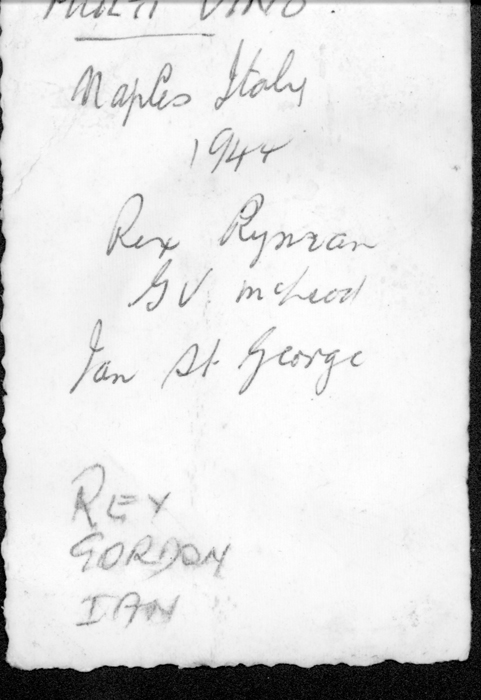 MULTI VINO.
Naples Italy
1944
Rex
GV. McLeod
Ian St. George
REX
GORDON
IAN